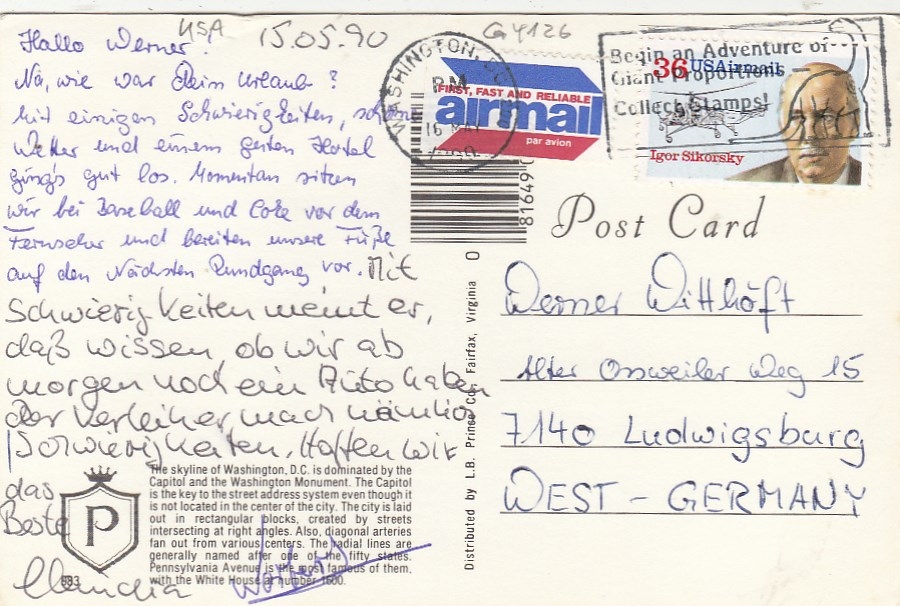 USA 15.05.90 G44126
Hallo Werner!
Na, wie war Dein Urlaub?
Mit einigen Schwierigkeiten, schönem
Wetter und einem guten Hotel
ging's gut los. Momentan sitzen
wir bei Baseball und Coke vor dem
Fernseher und bereiten unsere Füße
auf den Nächsten Rundgang vor. Mit
Schwierigkeiten meint er,
daß wissen, ob wir ab
morgen noch ein Auto haben
der Verleiher mach nämlich
Schwierigkeiten. Hoffen wir
das
Beste
Claudia
WASHINGTON, DC
PM
16 MAY
1990
FIRST, FAST AND RELIABLE
airmail
par avion
Begin an Adventure of
Giant Proportions
Collect Stamps!
36 USAirmail
Igor Sikorsky
81649
0
Post Card
Werner Witthöft
Alter Ossweiler Weg 15
7140 Ludwigsburg
WEST - GERMANY
Distributed by L.B. Prince Co., Fairfax, Virginia
P
The skyline of Washington, D.C. is dominated by the
Capitol and the Washington Monument. The Capitol
is the key to the street address system even though it
is not located in the center of the city. The city is laid
out in rectangular blocks, created by streets
intersecting at right angles. Also, diagonal arteries
fan out from various centers. The radial lines are
generally named after one of the fifty states.
Pennsylvania Avenue is the most famous of them.
with the White House at number 1600.